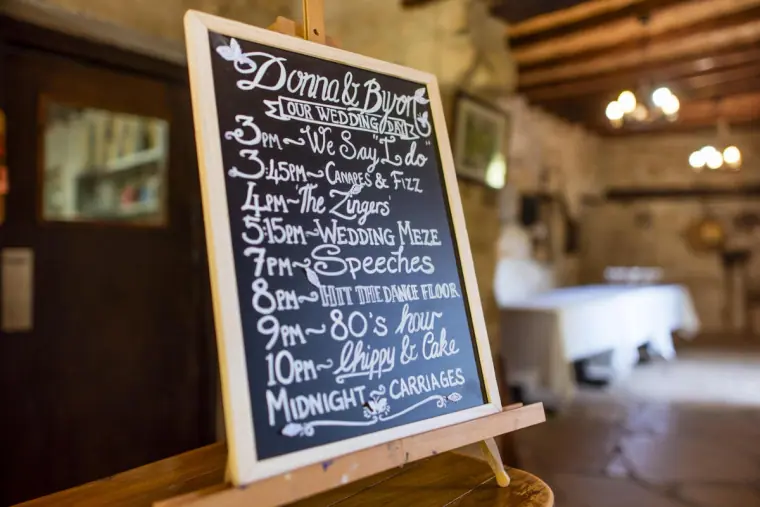 Donna & Byron
OUR WEDDING DAY
3PM~We Say "I do"
3:45PM~CANAPES & FIZZ
4PM~'The Zingers'
5:15PM~WEDDING MEZE
7PM~Speeches
8PM~HIT THE DANCE FLOOR
9PM~80's hour
10PM~Chippy & Cake
MIDNIGHT~CARRIAGES